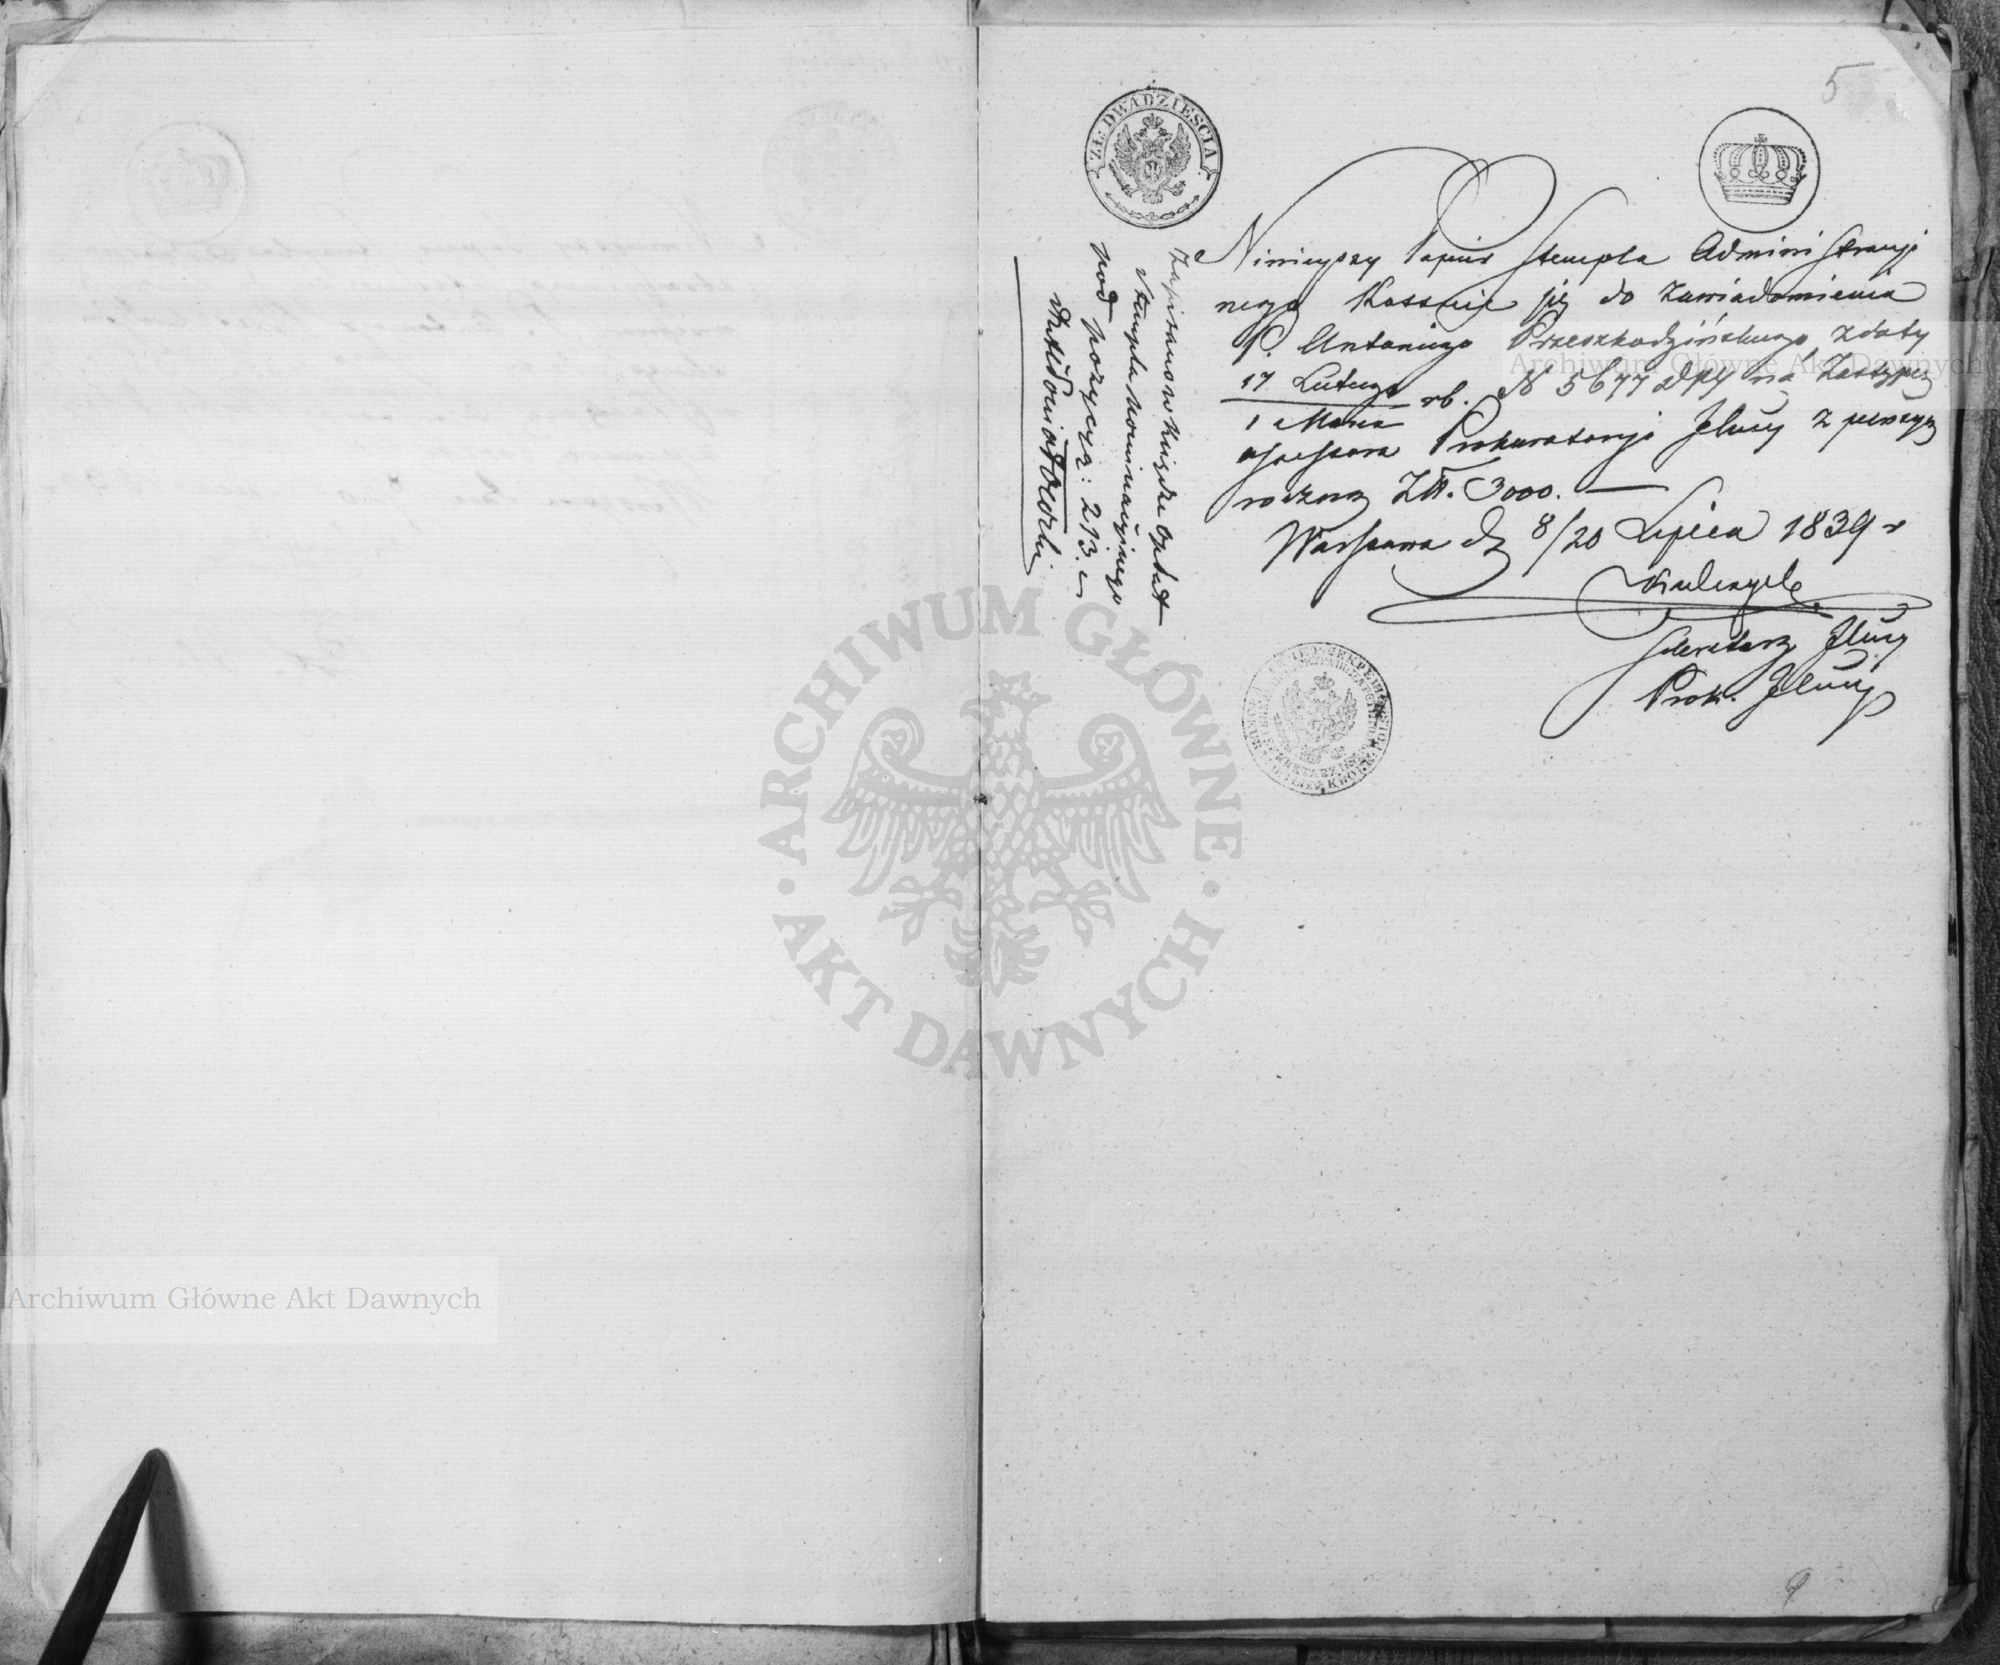 5
ZŁ: DWADZIEŚCIA
Niniejszy Papier Stempla Administracyj
nego Kassuje się do zawiadomienia
P. Antoniego Przeszkodzińskiego z daty
17 Lutego
1 Marca rb. N 5677 na Zastępcę
Assessora Prokuratoryi Jlney z pensyą
roczną Złt. 3000.
Warszawa d. 8/20 Lipca 1839 r
Sekretarz Jlney
Prok. Jlney
Zapisano w Księdze Opłat
Stempla nominacyjnego
pod pozycyą: 213.
ARCHIWUM GŁÓWNE
AKT DAWNYCH
Archiwum Główne Akt Dawnych
Archiwum Główne Akt Dawnych